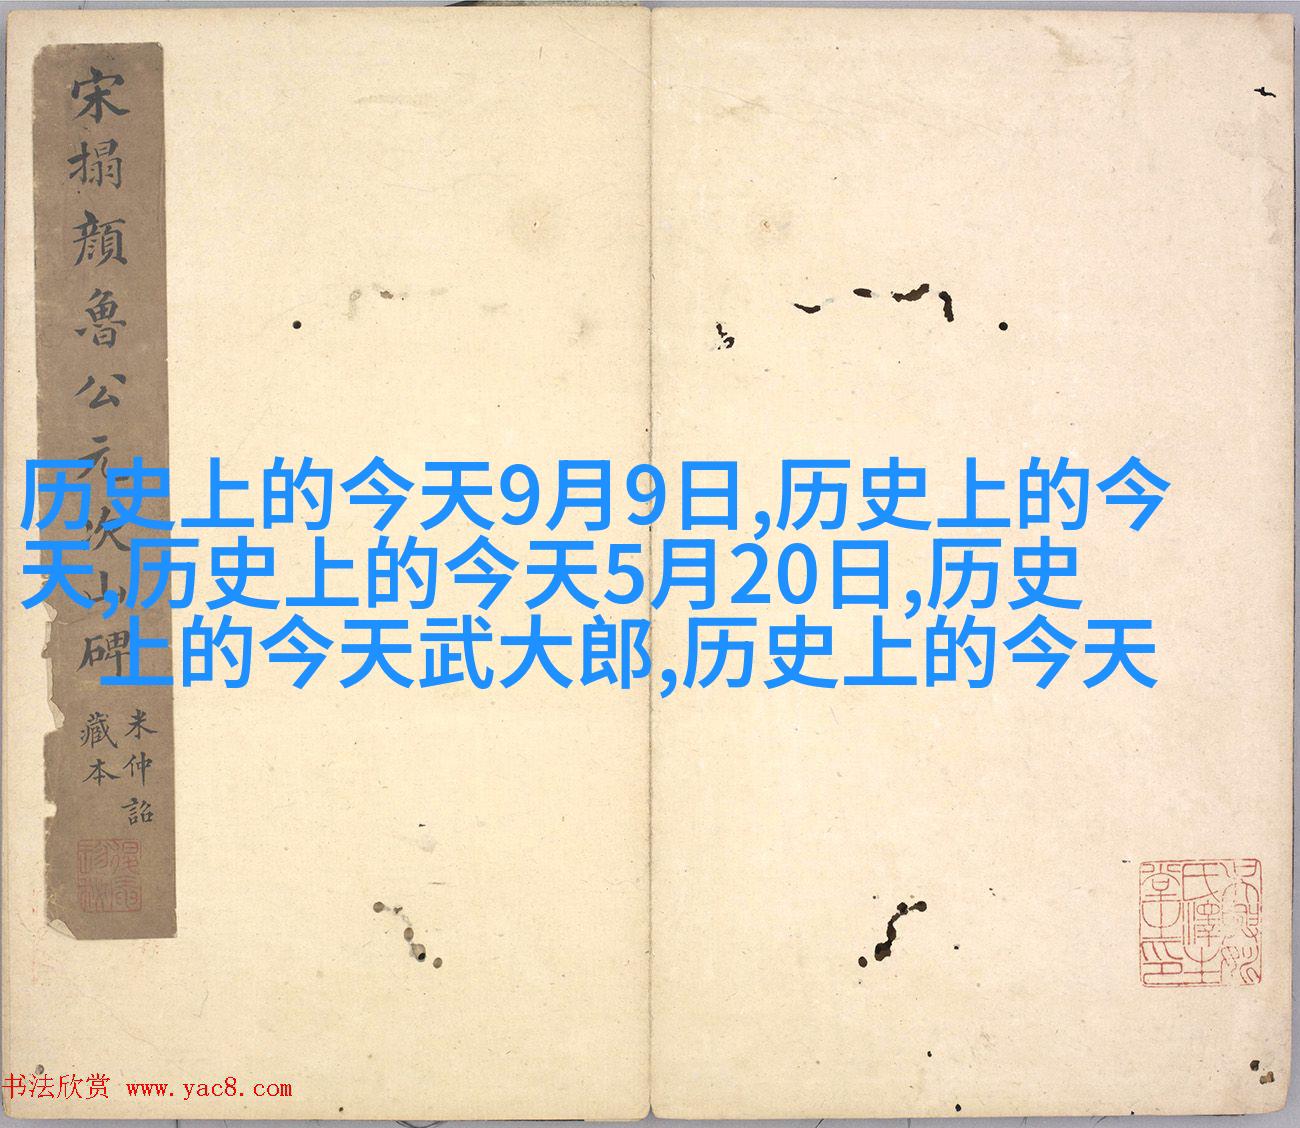 宋搨顔魯公元次山碑
米仲詔
藏本
历史上的今天9月9日,历史上的今
天,历史上的今天5月20日,历史
上的今天武大郎,历史上的今天
书法欣赏 www.yac8.com